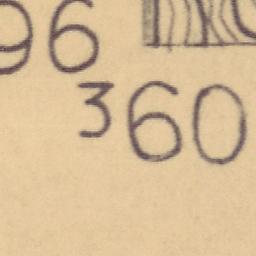 96
³60